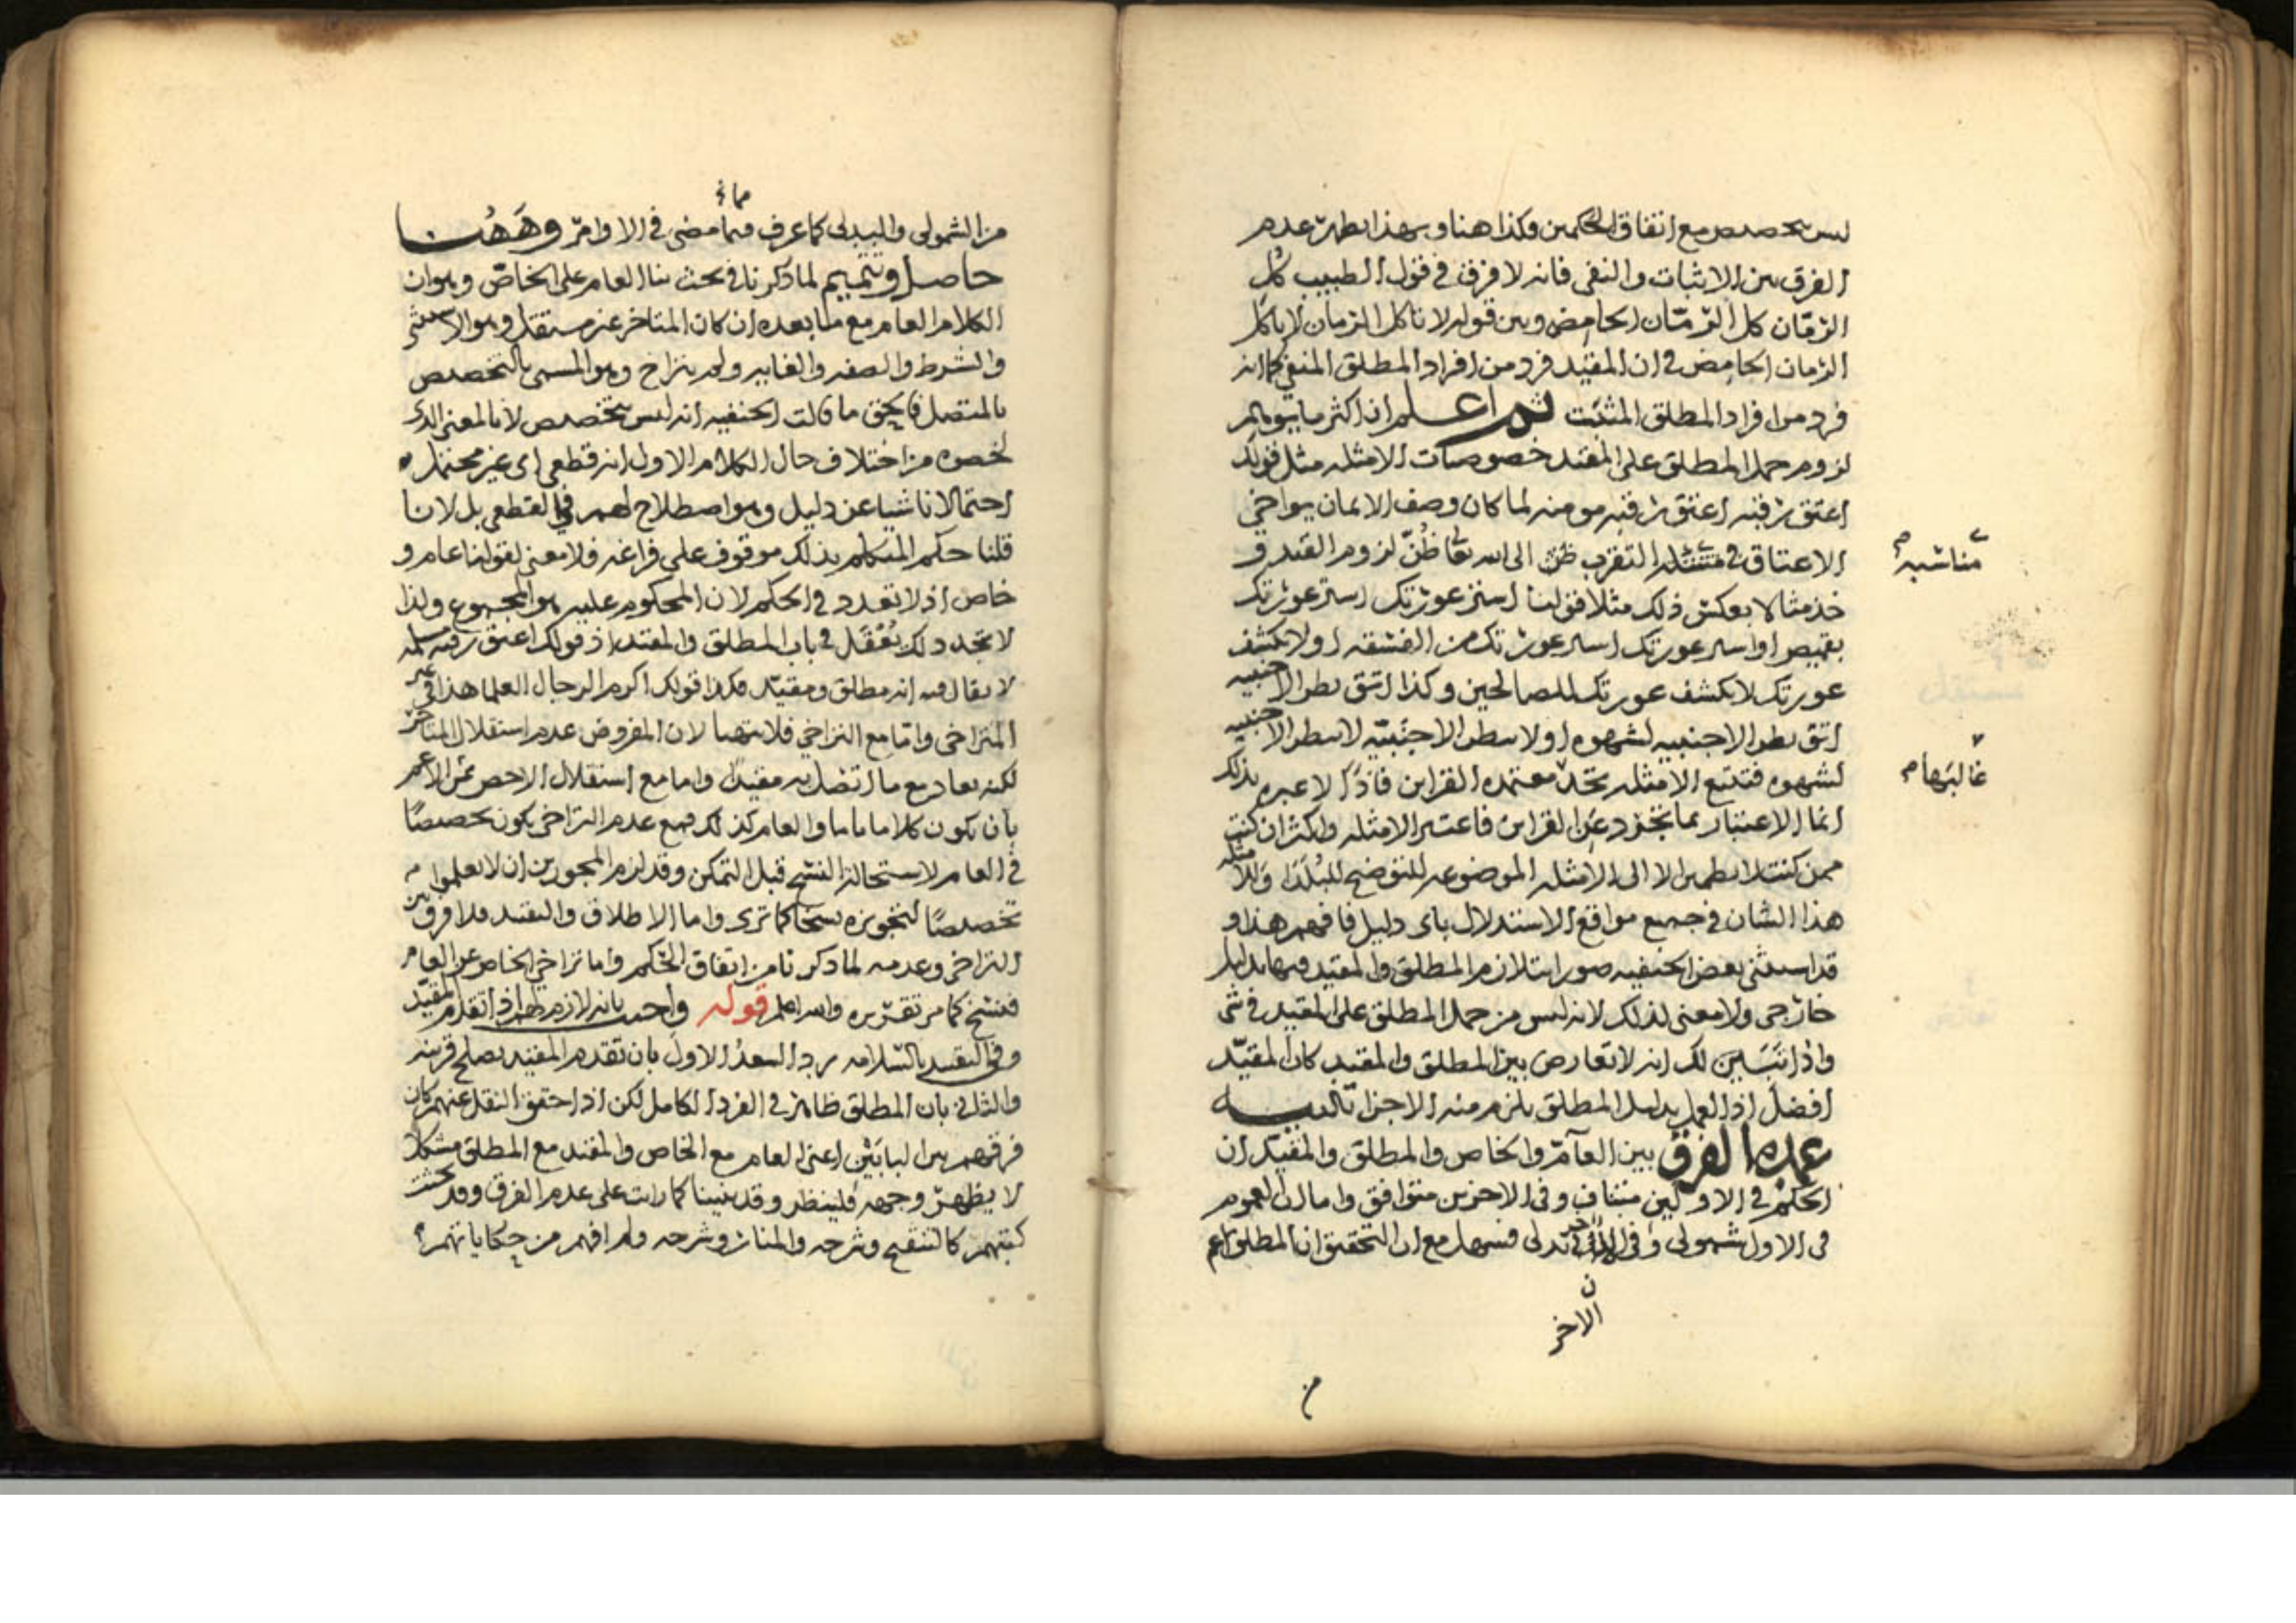 ليس بتخصيص مع اتفاق الحكمين وكذا هنا وبهذا يظهر عدم
الفرق بين الاثبات والنفي فانه لا فرق في قول الطبيب كل
الرمّان كل الرمّان الحامض وبين قوله لا تاكل الرمان لا تاكل
الرمان الحامض في ان المقيّد فرد من افراد المطلق المنفي كما انه
فرد من افراد المطلق المثبت ثم اعلم ان اكثر ما يوهم
لزوم حمل المطلق على المقيد خصوصيات الامثله مثل قولك
اعتق رقبه اعتق رقبه مومنه لما كان وصف الايمان يواخي
الاعتاق في التقرب الى الله تعا ظُنّ لزوم القيد و
مناسبه
خذ مثالا بعكس ذلك مثلا قولنا استر عورتك استر عورتك
بقميص او استر عورتك استر عورتك من الفسقه او لا تكشف
عورتك لا تكشف عورتك للصالحين وكذا اتق نظر الاجنبيه
اتق نظر الاجنبيه لشهوه او لا تنظر الاجنبيّه لا تنظر الاجنبيه
لشهوه فتتبع الامثله تجدْ معتمده القراين فاذًا لا عبره بذلك
غالبها
انما الاعتبار بما تجرد عن القراين فاعتبر الامثله واكثر ان كنت
ممن لا يطمين الا الى الامثله الموضوعه للتوضيح للبُلَدَا
هذا الشان في جميع مواقع الاستدلال باى دليل فافهم هذا و
قد استثنى بعض الحنفيه صور استلازم المطلق والمقيد فيها بدليل
خارجى ولا معنى لذلك لانه ليس من حمل المطلق على المقيد في شى
واذا تبَيّن لك انه لا تعارض بين المطلق والمقيد كان المقيّد
افضل اذ العمل بدليل المطلق يلزم منه الاجزا تنبيه
عمده الفرق بين العامّ والخاص والمطلق والمقيّد ان
الحكم في الاولين متناف وفى الاخرين متوافق واما ان العموم
فى الاول شمولى وفى بدلى فسهل مع ان التحقيق ان المطلق اعم
الاخر
من
من الشمولى والبدلى كما عرف فيما مضى في الاوامر وههنا
حاصل وتتميم لما ذكرنا في بحث بنا العام على الخاصّ وهو ان
الكلام العام مع ما بعده ان كان المتاخر غير مستقل وهو الاستثنى
والشرط والصفه والغايه ولم يتراخ وهو المسمى بالتخصيص
بالمتصل فالحق ما قالت الحنفيه انه ليس بتخصيص لا بالمعنى الذى
لخصوه من اختلاف حال الكلام الاول انه قطعى اى غير محتمل
احتمالا ناشيا عن دليل وهو اصطلاح لهم في القطعى بل لانا
قلنا حكم المتكلم بذلك موقوف على فراغه فلا معنى لقولنا عام و
خاص اذ لا تعدد في الحكم لان المحكوم عليه هو المجموع ولذا
لا تجد ذلك يُعْقَل في باب المطلق والمقيد اذ قولك اعتق رقبه مسلمه
لا يقال فيه انه مطلق ومقيّد فكذا قولك اكرم الرجال العلما هذا في غير
المتراخى وامّا مع التراخي فلا تخصيصا لان المفروض عدم استقلال المتاخر
لكنه يعاد مع ما اتصل به مقيدًا واما مع استقلال الاخص من الاعم
بان يكون كلاما تاما والعام كذلك فمع عدم التراخى يكون تخصيصًا
في العام لاستحالة النسخ قبل التمكن وقد لزم المجوزين ان لا يعلموا
تخصيصًا لتجويزه نسخا كما ترى واما الاطلاق والتقييد فلا فرق بين
التراخى وعدمه لما ذكرنا من اتفاق الحُكم واما تراخي الخاص عن العام
فنسخ كما مر تقريره والله اعلم قوله واجيب بانه لازم لهم اذا تقدم المقيّد
وفى التقييد بالسّلامه يرد السعدُ الاول بان تقدم المقيد يصلح قرينه
والثانى بان المطلق ظاهر في الفرد الكامل لكن اذا حقق النقل عنهم كان
فرقهم بين البابَيْن اعنى العام مع الخاص والمقيد مع المطلق مشكلا
لا يظهر وجهه فلينظر وقد بينا كما رايت على عدم الفرق وقد بحثت
كتبهم كالتنقيح وشرحه والمنار وشرحه ولم افهم من حكاياتهم